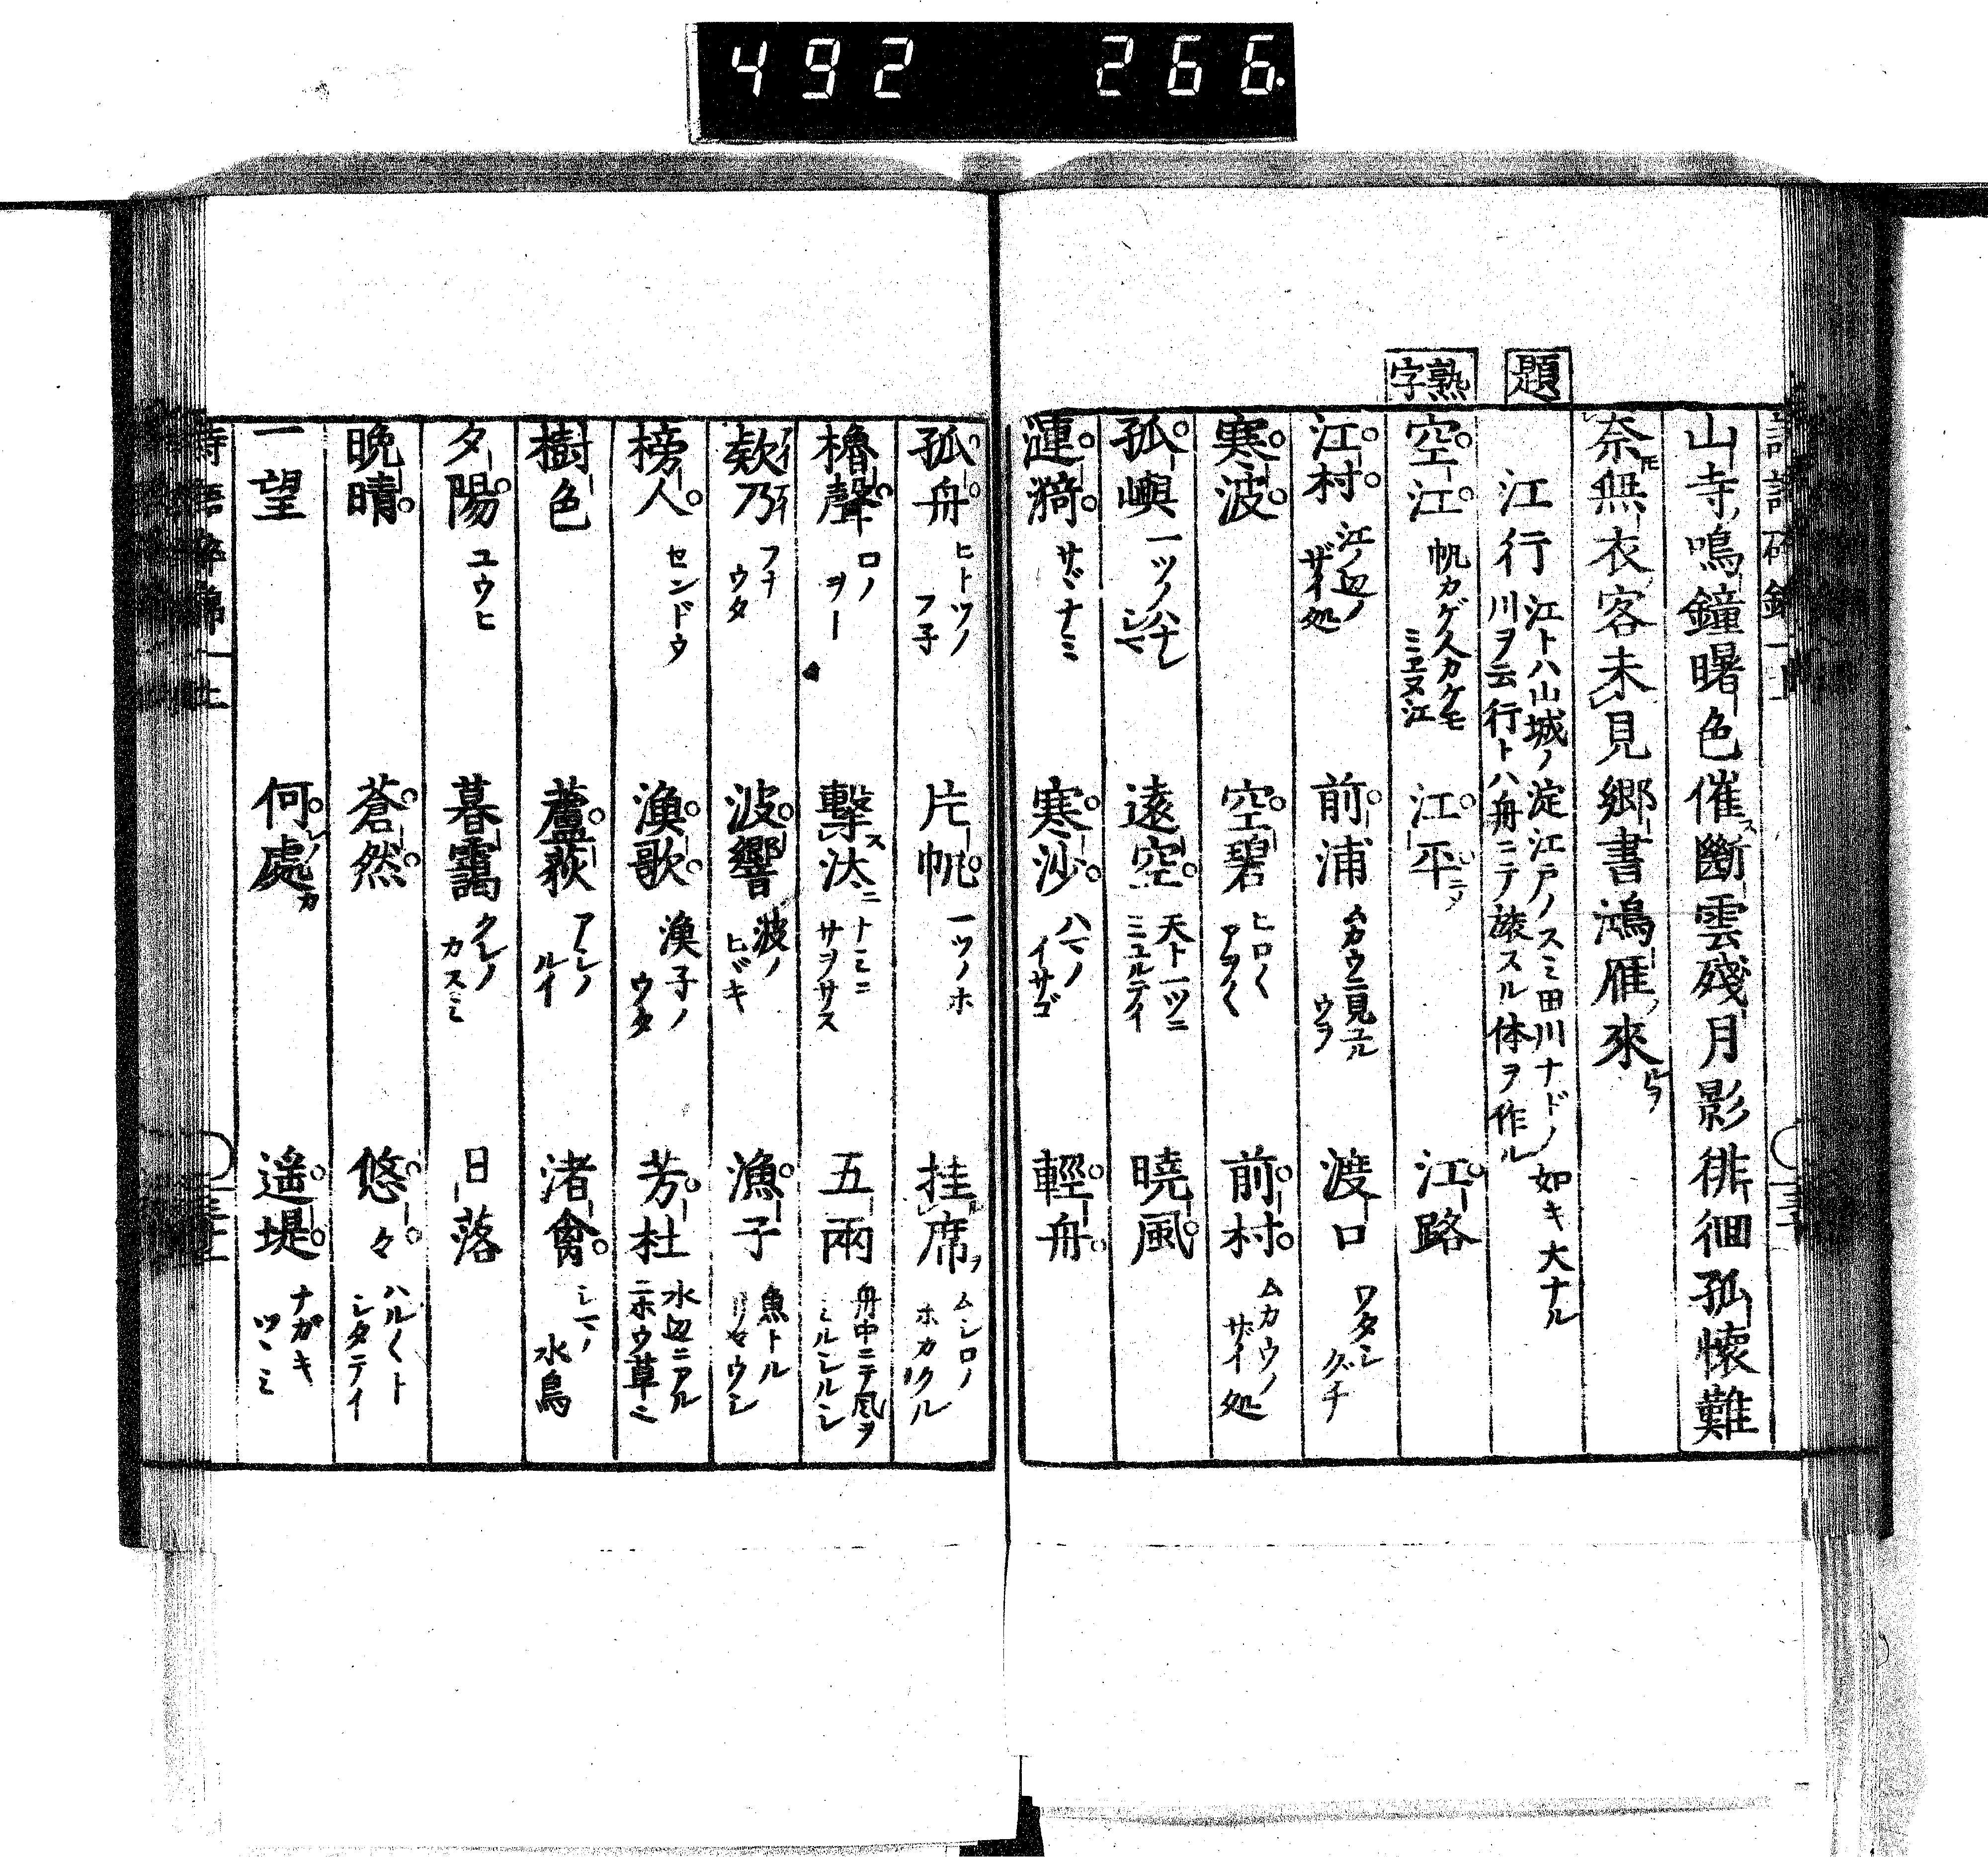 492 266
山寺鳴鐘曙色催斷雲殘月影徘徊孤懷難
奈無衣客未見郷書鴻雁來
題
江行 江トハ山城ノ淀江戸ノスミ田川ナドノ如キ大ナル
川ヲ云行トハ舟ニテ旅スル体ヲ作ル
熟字
空江 帆カゲ人カケモミヱヌ江 江平 江路
江村 江ノ辺ノザイ処 前浦 ムカウニ見ユルウラ 渡口 ワタシグチ
寒波 空碧 ヒロ〱アヲ〱 前村 ムカウノザイ処
孤嶼 一ツノハナレシマ 遠空 天ト一ツニミユルテイ 曉風
漣漪 サヾナミ 寒沙 ハマノイサゴ 輕舟
孤舟 ヒトツノフ子 片帆 一ツノホ 挂席 ムシロノホカクル
櫓聲 ロノヲー 擊汰 ナミニサヲサス 五兩 舟中ニテ風ヲミルシルシ
欸乃 フナウタ 波響 波ノヒヾキ 漁子 魚トルリヤウシ
榜人 センドウ 漁歌 漁子ノウタ 芳杜 水辺ニアルニホウ草ミ
樹色 蘆荻 アシノルイ 渚禽 シマノ水鳥
夕陽 ユウヒ 暮靄 クレノカスミ 日落
晩晴 蒼然 悠々 ハル〱トシタテイ
一望 何處 遥堤 ナガキツヽミ